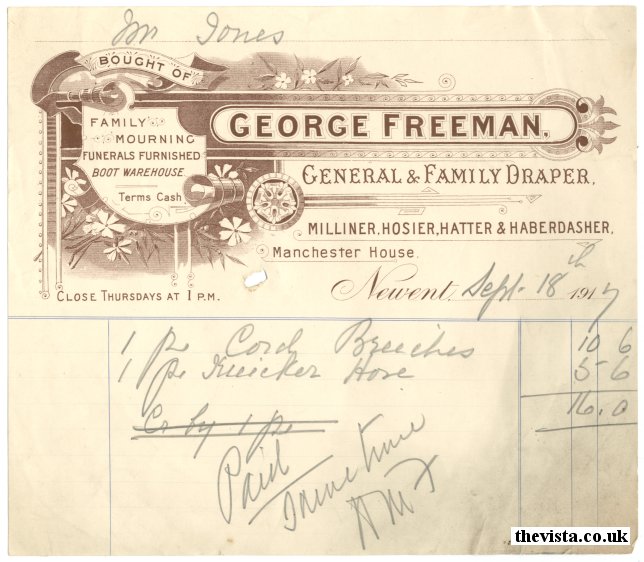 Mr Jones
BOUGHT OF
GEORGE FREEMAN,
FAMILY
MOURNING
FUNERALS FURNISHED
BOOT WAREHOUSE.
Terms Cash
GENERAL & FAMILY DRAPER,
MILLINER, HOSIER, HATTER & HABERDASHER,
Manchester House.
CLOSE THURSDAYS AT 1 P.M.
Newent, Sept. 18th 1917
1 pr Cord Breeches 10 6
1 pr Knicker Hose 5-6
16.0
Cr by 1 pr
Paid
same time
thevista.co.uk